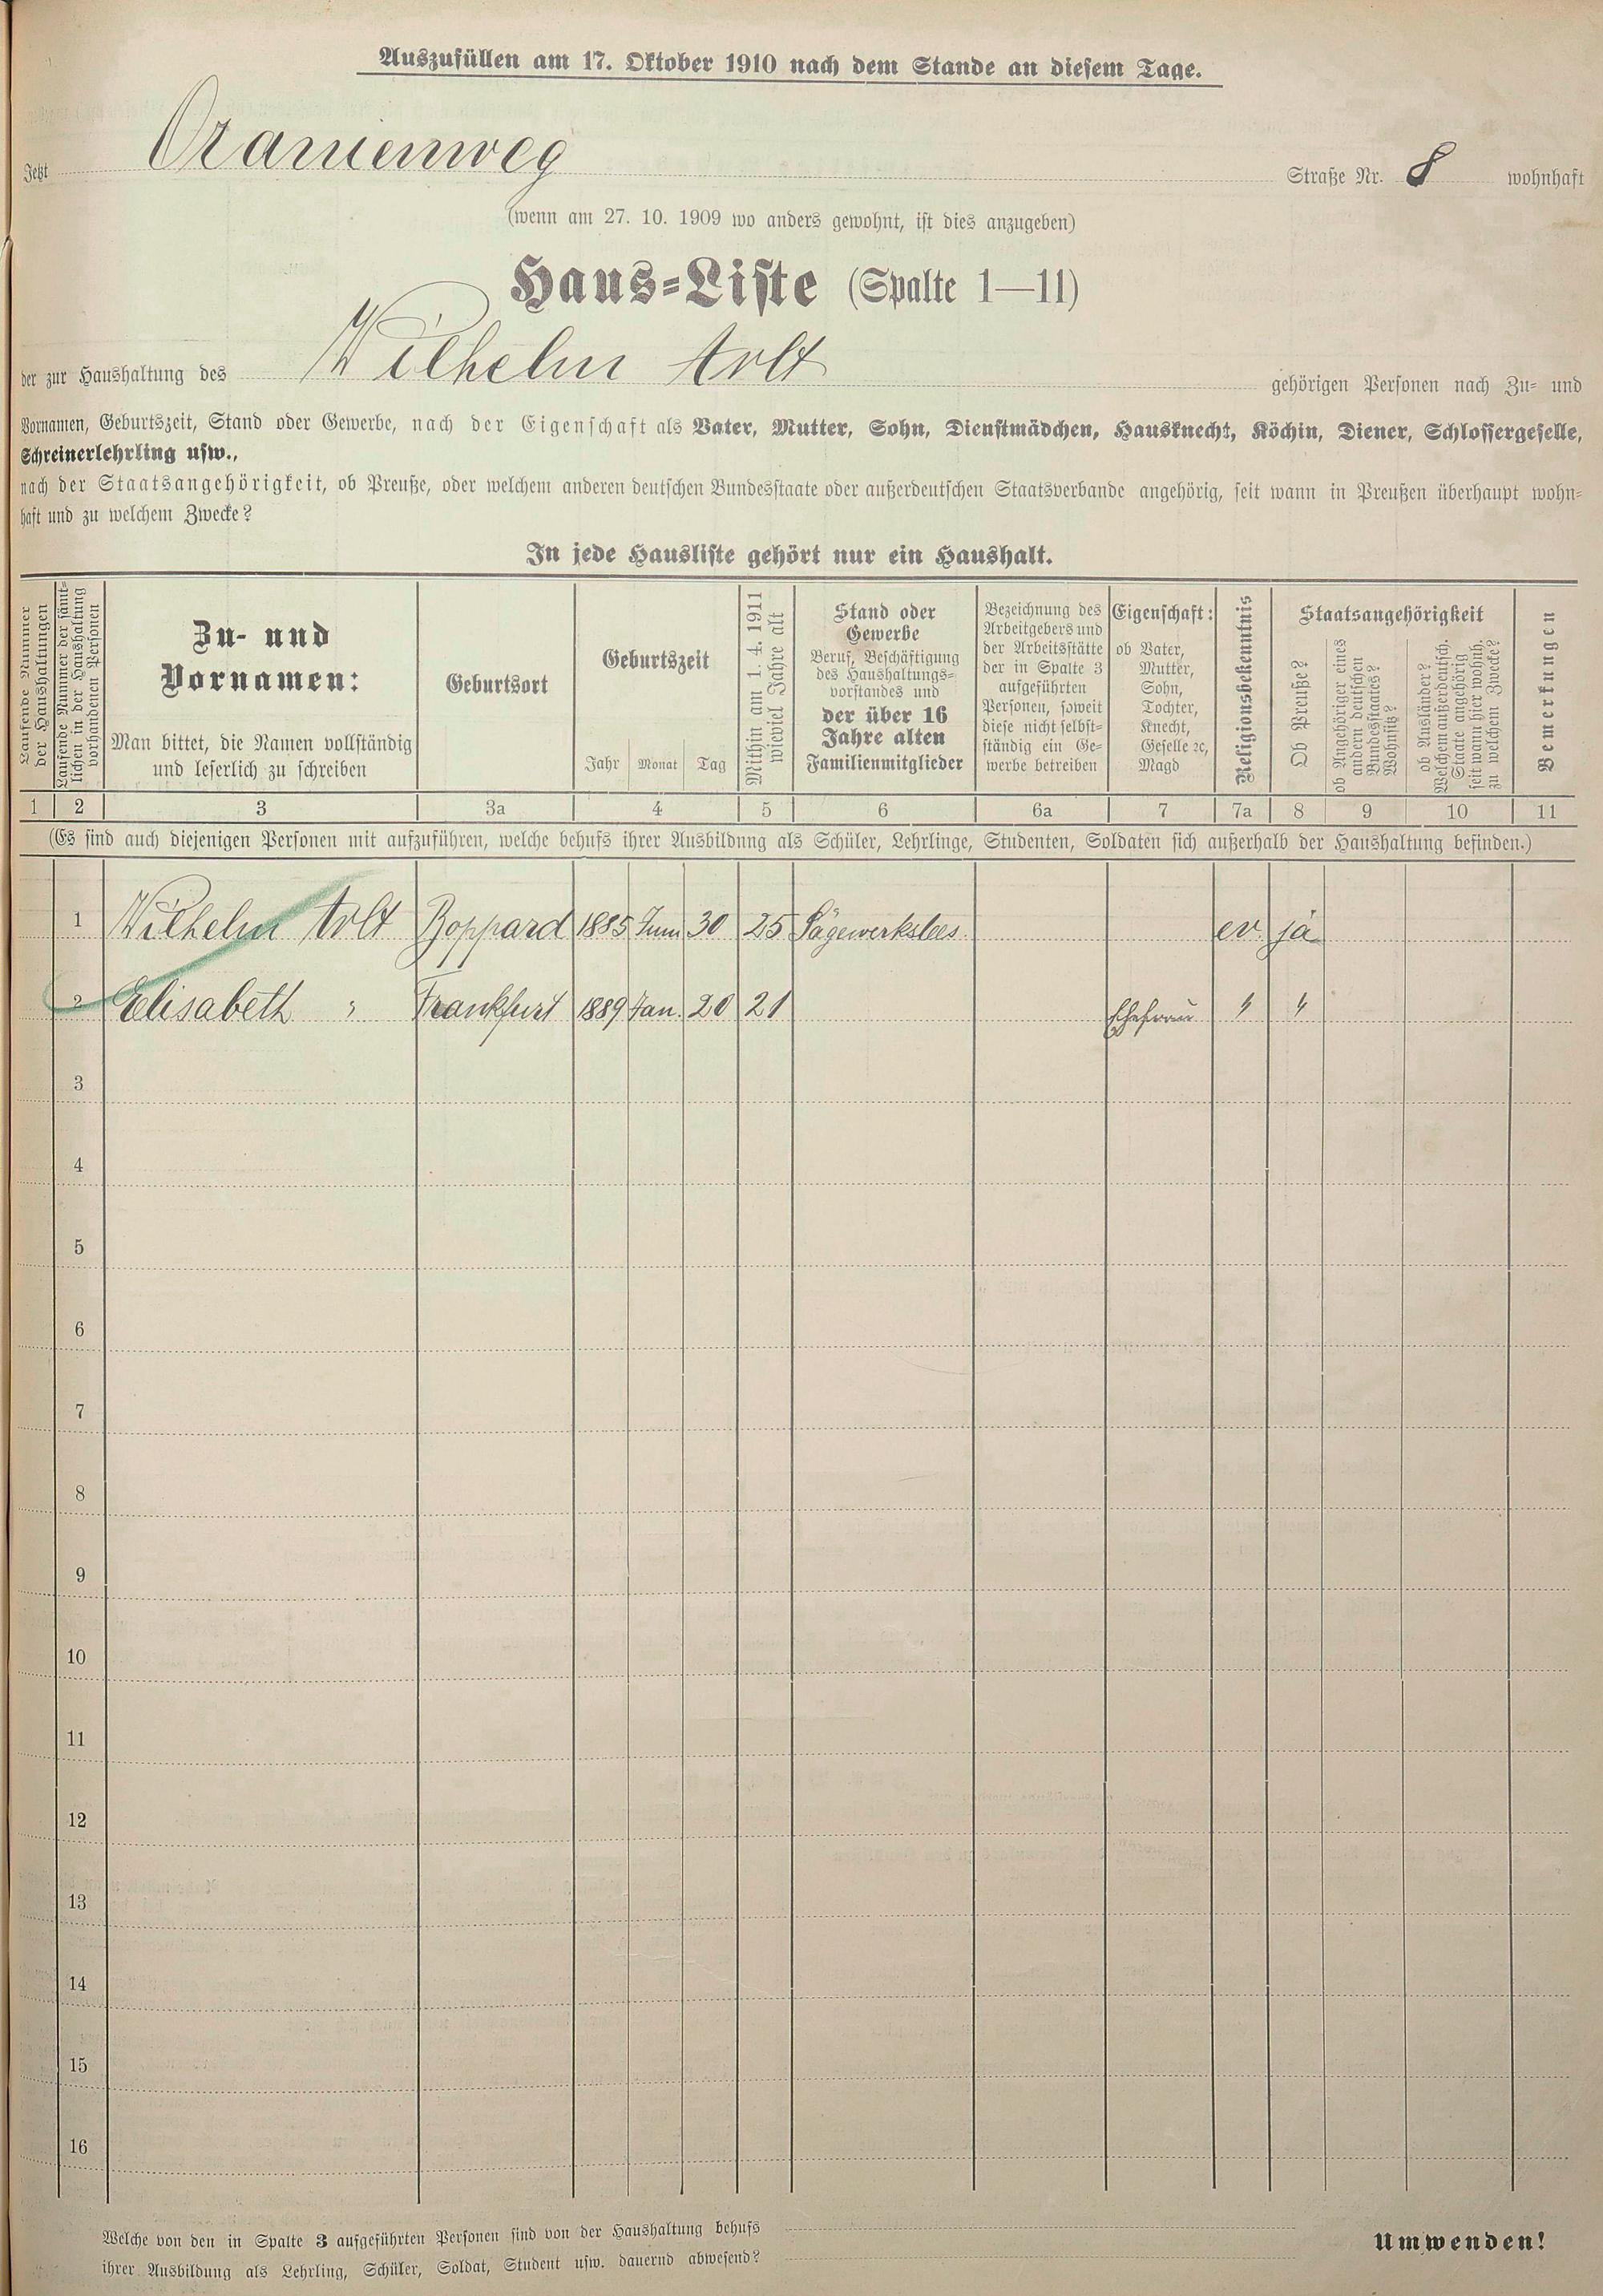 Auszufüllen am 17. Oktober 1910 nach dem Stande an diesem Tage.
Jetzt Oranienweg Straße Nr. 8 wohnhaft
(wenn am 27. 10. 1909 wo anders gewohnt, ist dies anzugeben)
Haus-Liste (Spalte 1—11)
der zur Haushaltung des Wilhelm Arlt gehörigen Personen nach Zu- und
Vornamen, Geburtszeit, Stand oder Gewerbe, nach der Eigenschaft als Vater, Mutter, Sohn, Dienstmädchen, Hausknecht, Köchin, Diener, Schlossergeselle,
Schreinerlehrling usw.,
nach der Staatsangehörigkeit, ob Preuße, oder welchem anderen deutschen Bundesstaate oder außerdeutschen Staatsverbande angehörig, seit wann in Preußen überhaupt wohn-
haft und zu welchem Zwecke?
In jede Hausliste gehört nur ein Haushalt.
Laufende Nummer
der Haushaltungen
Laufende Nummer der sämt-
lichen in der Haushaltung
vorhandenen Personen
Zu- und
Vornamen:
Man bittet, die Namen vollständig
und leserlich zu schreiben
Geburtsort
Geburtszeit
Jahr Monat Tag
Mithin am 1. 4. 1911
wieviel Jahre alt
Stand oder
Gewerbe
Beruf, Beschäftigung
des Haushaltungs-
vorstandes und
der über 16
Jahre alten
Familienmitglieder
Bezeichnung des
Arbeitgebers und
der Arbeitsstätte
der in Spalte 3
aufgeführten
Personen, soweit
diese nicht selbst-
ständig ein Ge-
werbe betreiben
Eigenschaft:
ob Vater,
Mutter,
Sohn,
Tochter,
Knecht,
Geselle ꝛc,
Magd
Religionsbekenntnis
Staatsangehörigkeit
Ob Preuße?
ob Angehöriger eines
andern deutschen
Bundesstaates?
Wohnsitz?
ob Ausländer?
Welchem außerdeutsch.
Staate angehörig
seit wann hier wohnh.
zu welchem Zwecke?
Bemerkungen
1 2 3 3a 4 5 6 6a 7 7a 8 9 10 11
(Es sind auch diejenigen Personen mit aufzuführen, welche behufs ihrer Ausbildung als Schüler, Lehrlinge, Studenten, Soldaten sich außerhalb der Haushaltung befinden.)
1 Wilhelm Arlt Boppard 1885 Juni 30 25 ev. ja
2 Elisabeth " Frankfurt 1889 Jan. 20 21 Ehefrau " "
3
4
5
6
7
8
9
10
11
12
13
14
15
16
Welche von den in Spalte 3 aufgeführten Personen sind von der Haushaltung behufs
ihrer Ausbildung als Lehrling, Schüler, Soldat, Student usw. dauernd abwesend?
Umwenden!